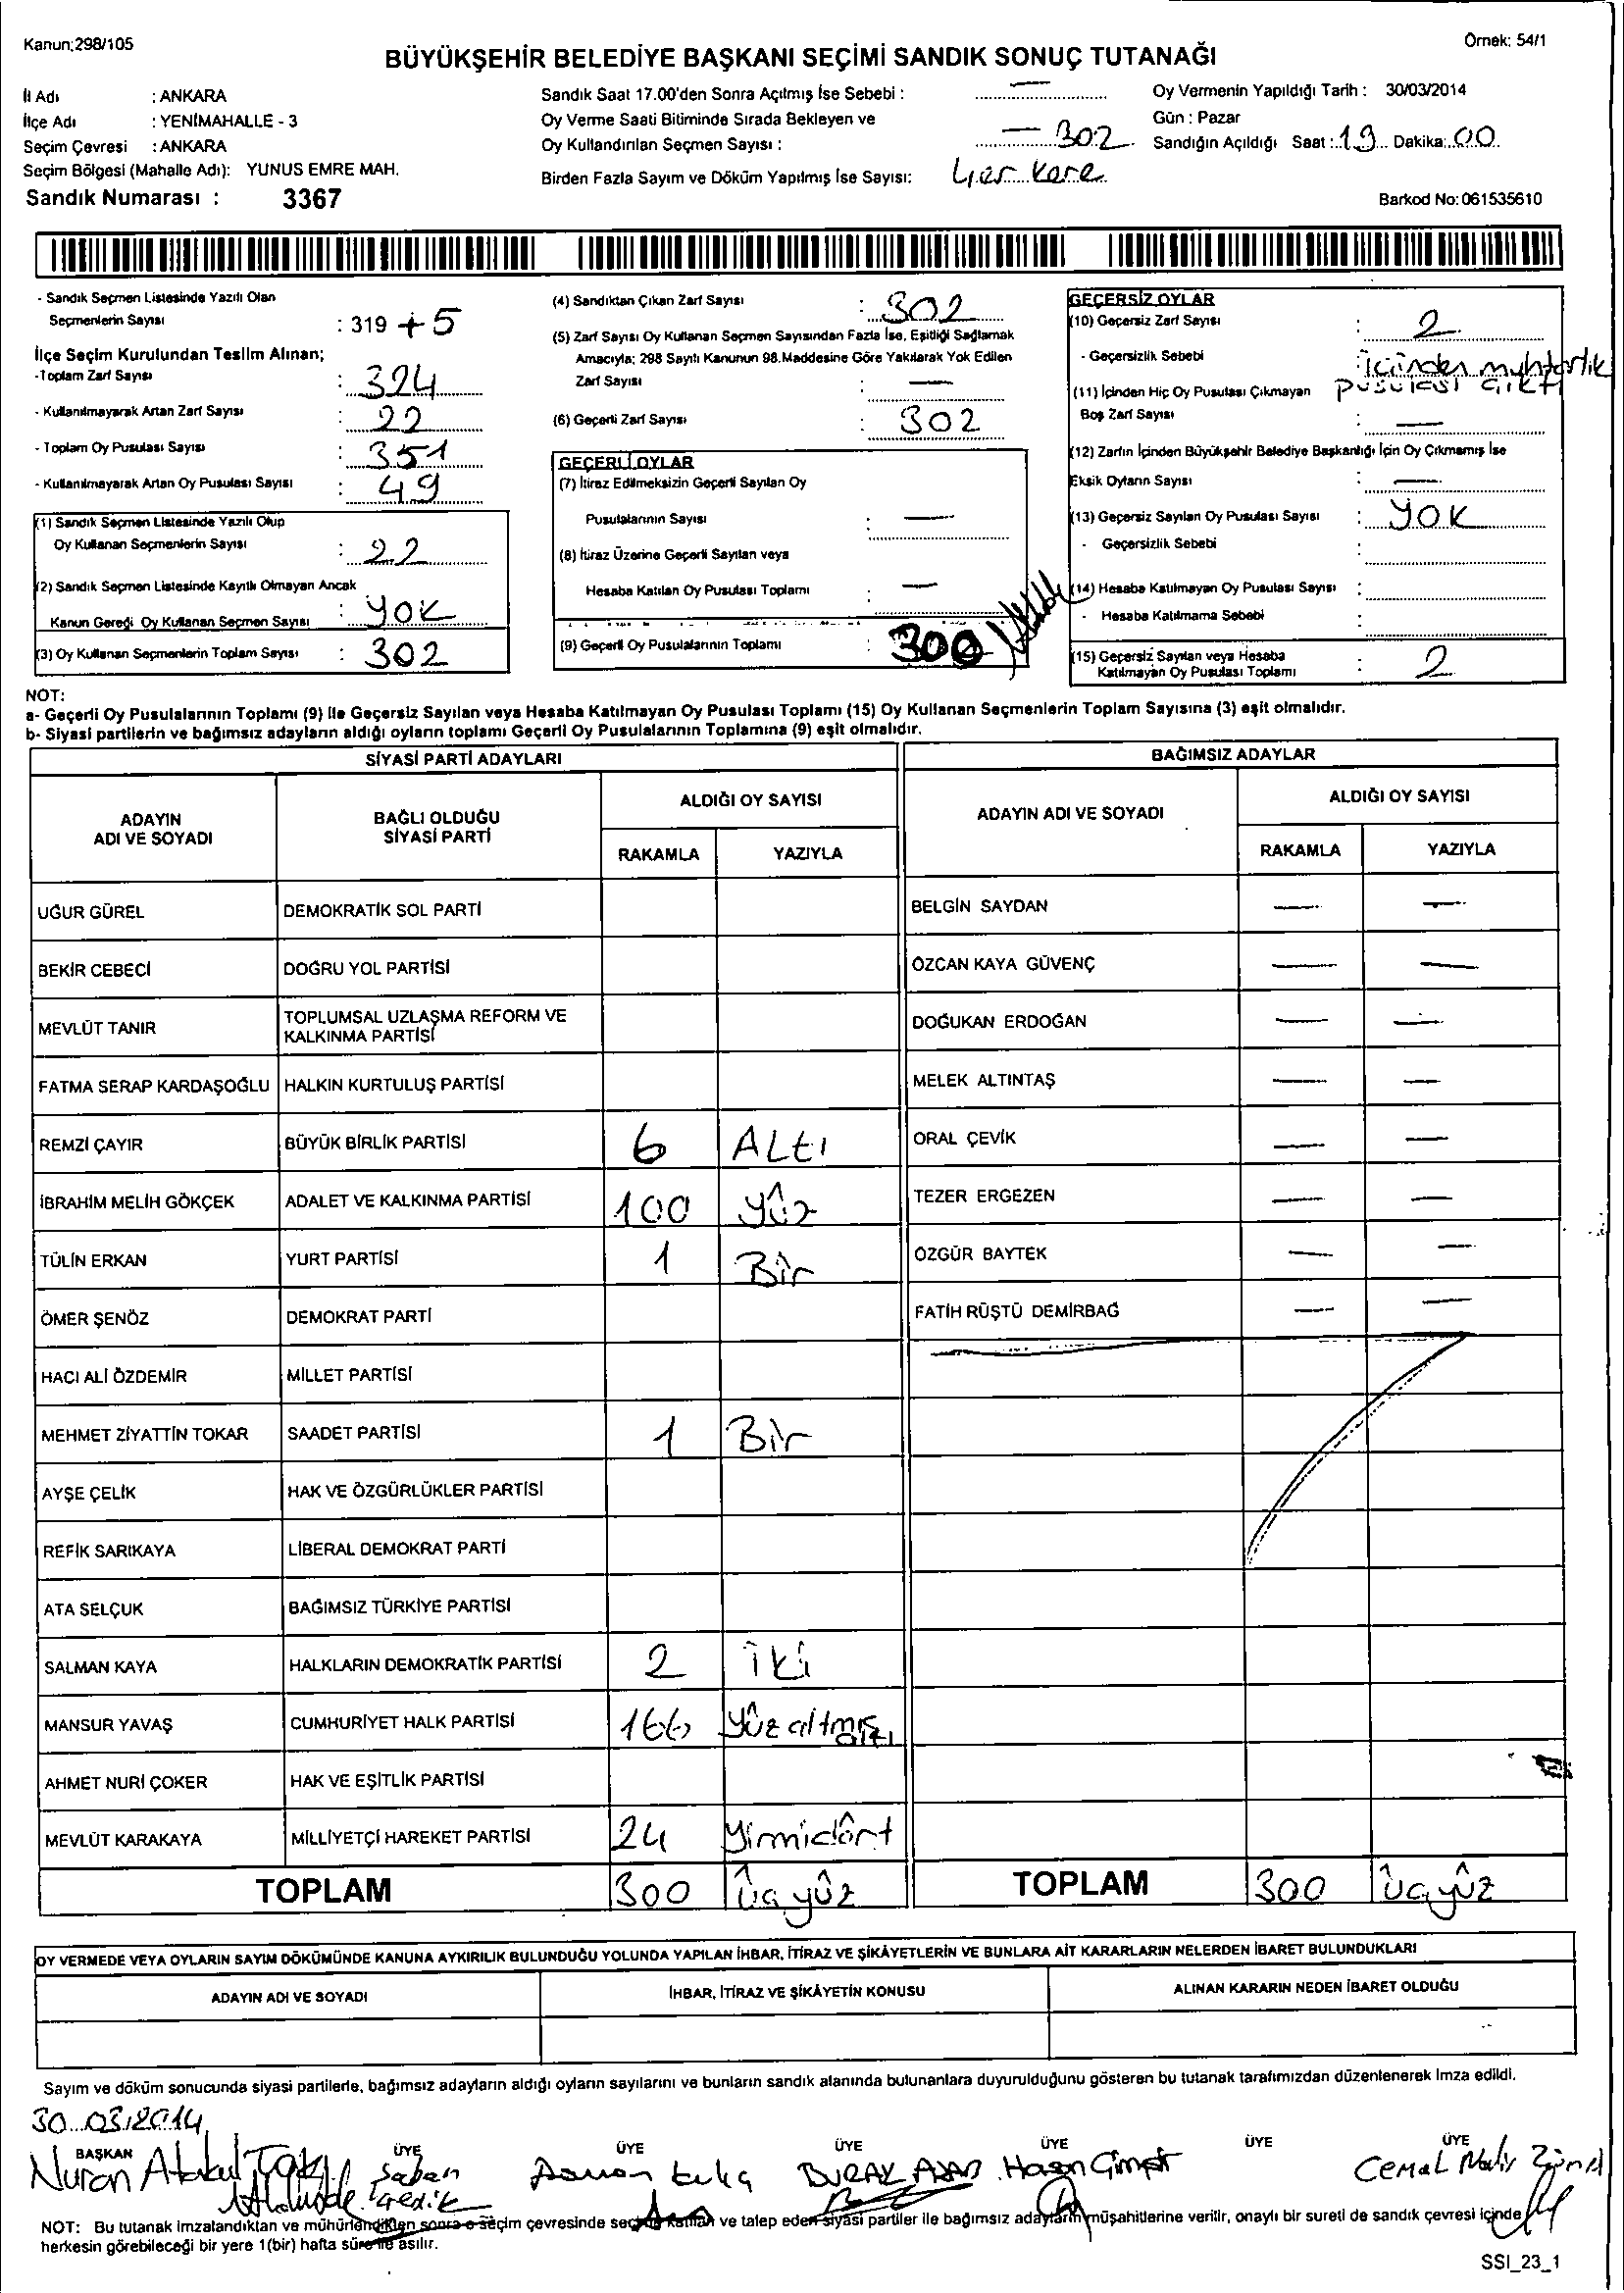 Kanun:298/105
Örnek: 54/1
BÜYÜKŞEHİR BELEDİYE BAŞKANI SEÇİMİ SANDIK SONUÇ TUTANAĞI
İl Adı : ANKARA
İlçe Adı : YENİMAHALLE - 3
Seçim Çevresi : ANKARA
Seçim Bölgesi (Mahalle Adı): YUNUS EMRE MAH.
Sandık Numarası : 3367
Sandık Saat 17.00'den Sonra Açılmış İse Sebebi : —
Oy Verme Saati Bitiminde Sırada Bekleyen ve
Oy Kullandırılan Seçmen Sayısı : — 302
Birden Fazla Sayım ve Döküm Yapılmış İse Sayısı: 4.er kere
Oy Vermenin Yapıldığı Tarih : 30/03/2014
Gün : Pazar
Sandığın Açıldığı Saat : 19 Dakika: 00
Barkod No: 061535610
- Sandık Seçmen Listesinde Yazılı Olan
Seçmenlerin Sayısı : 319 + 5
İlçe Seçim Kurulundan Teslim Alınan;
-Toplam Zarf Sayısı : 324
- Kullanılmayarak Artan Zarf Sayısı : 22
- Toplam Oy Pusulası Sayısı : 351
- Kullanılmayarak Artan Oy Pusulası Sayısı : 49
(1) Sandık Seçmen Listesinde Yazılı Olup
Oy Kullanan Seçmenlerin Sayısı : 22
(2) Sandık Seçmen Listesinde Kayıtlı Olmayan Ancak
Kanun Gereği Oy Kullanan Seçmen Sayısı : YOK
(3) Oy Kullanan Seçmenlerin Toplam Sayısı : 302
(4) Sandıktan Çıkan Zarf Sayısı : 302
(5) Zarf Sayısı Oy Kullanan Seçmen Sayısından Fazla İse, Eşitliği Sağlamak
Amacıyla; 298 Sayılı Kanunun 98.Maddesine Göre Yakılarak Yok Edilen
Zarf Sayısı : —
(6) Geçerli Zarf Sayısı : 302
GEÇERLİ OYLAR
(7) İtiraz Edilmeksizin Geçerli Sayılan Oy
Pusulalarının Sayısı : —
(8) İtiraz Üzerine Geçerli Sayılan veya
Hesaba Katılan Oy Pusulası Toplamı : —
(9) Geçerli Oy Pusulalarının Toplamı : 300
GEÇERSİZ OYLAR
(10) Geçersiz Zarf Sayısı : 2
- Geçersizlik Sebebi : içinden muhtarlık
pusulası çıktı
(11) İçinden Hiç Oy Pusulası Çıkmayan
Boş Zarf Sayısı : —
(12) Zarfın İçinden Büyükşehir Belediye Başkanlığı İçin Oy Çıkmamış İse
Eksik Oyların Sayısı : —
(13) Geçersiz Sayılan Oy Pusulası Sayısı : YOK
- Geçersizlik Sebebi :
(14) Hesaba Katılmayan Oy Pusulası Sayısı :
- Hesaba Katılmama Sebebi :
(15) Geçersiz Sayılan veya Hesaba
Katılmayan Oy Pusulası Toplamı : 2
NOT:
a- Geçerli Oy Pusulalarının Toplamı (9) ile Geçersiz Sayılan veya Hesaba Katılmayan Oy Pusulası Toplamı (15) Oy Kullanan Seçmenlerin Toplam Sayısına (3) eşit olmalıdır.
b- Siyasi partilerin ve bağımsız adayların aldığı oyların toplamı Geçerli Oy Pusulalarının Toplamına (9) eşit olmalıdır.
SİYASİ PARTİ ADAYLARI
ADAYIN ADI VE SOYADI
BAĞLI OLDUĞU SİYASİ PARTİ
ALDIĞI OY SAYISI
RAKAMLA YAZIYLA
UĞUR GÜREL DEMOKRATİK SOL PARTİ
BEKİR CEBECİ DOĞRU YOL PARTİSİ
MEVLÜT TANIR TOPLUMSAL UZLAŞMA REFORM VE KALKINMA PARTİSİ
FATMA SERAP KARDAŞOĞLU HALKIN KURTULUŞ PARTİSİ
REMZİ ÇAYIR BÜYÜK BİRLİK PARTİSİ 6 ALtı
İBRAHİM MELİH GÖKÇEK ADALET VE KALKINMA PARTİSİ 100 yüz
TÜLİN ERKAN YURT PARTİSİ 1 Bir
ÖMER ŞENÖZ DEMOKRAT PARTİ
HACI ALİ ÖZDEMİR MİLLET PARTİSİ
MEHMET ZİYATTİN TOKAR SAADET PARTİSİ 1 Bir
AYŞE ÇELİK HAK VE ÖZGÜRLÜKLER PARTİSİ
REFİK SARIKAYA LİBERAL DEMOKRAT PARTİ
ATA SELÇUK BAĞIMSIZ TÜRKİYE PARTİSİ
SALMAN KAYA HALKLARIN DEMOKRATİK PARTİSİ 2 iki
MANSUR YAVAŞ CUMHURİYET HALK PARTİSİ 166 yüzaltmış altı
AHMET NURİ ÇOKER HAK VE EŞİTLİK PARTİSİ
MEVLÜT KARAKAYA MİLLİYETÇİ HAREKET PARTİSİ 24 yirmidört
TOPLAM 300 üçyüz
BAĞIMSIZ ADAYLAR
ADAYIN ADI VE SOYADI
ALDIĞI OY SAYISI
RAKAMLA YAZIYLA
BELGİN SAYDAN — —
ÖZCAN KAYA GÜVENÇ — —
DOĞUKAN ERDOĞAN — —
MELEK ALTINTAŞ — —
ORAL ÇEVİK — —
TEZER ERGEZEN — —
ÖZGÜR BAYTEK — —
FATİH RÜŞTÜ DEMİRBAĞ — —
TOPLAM 300 üçyüz
OY VERMEDE VEYA OYLARIN SAYIM DÖKÜMÜNDE KANUNA AYKIRILIK BULUNDUĞU YOLUNDA YAPILAN İHBAR, İTİRAZ VE ŞİKÂYETLERİN VE BUNLARA AİT KARARLARIN NELERDEN İBARET BULUNDUKLARI
ADAYIN ADI VE SOYADI
İHBAR, İTİRAZ VE ŞİKÂYETİN KONUSU
ALINAN KARARIN NEDEN İBARET OLDUĞU
Sayım ve döküm sonucunda siyasi partilerle, bağımsız adayların aldığı oyların sayılarını ve bunların sandık alanında bulunanlara duyurulduğunu gösteren bu tutanak tarafımızdan düzenlenerek imza edildi.
30.03.2014
BAŞKAN ÜYE ÜYE ÜYE ÜYE ÜYE ÜYE
Nuran Şaban Gedik BURAK Hasan CEMAL
NOT: Bu tutanak imzalandıktan ve mühürlendikten sonra o seçim çevresinde seçime katılan ve talep eden siyasi partiler ile bağımsız adayların müşahitlerine verilir, onaylı bir sureti de sandık çevresi içinde
herkesin görebileceği bir yere 1(bir) hafta süre ile asılır.
SSI_23_1